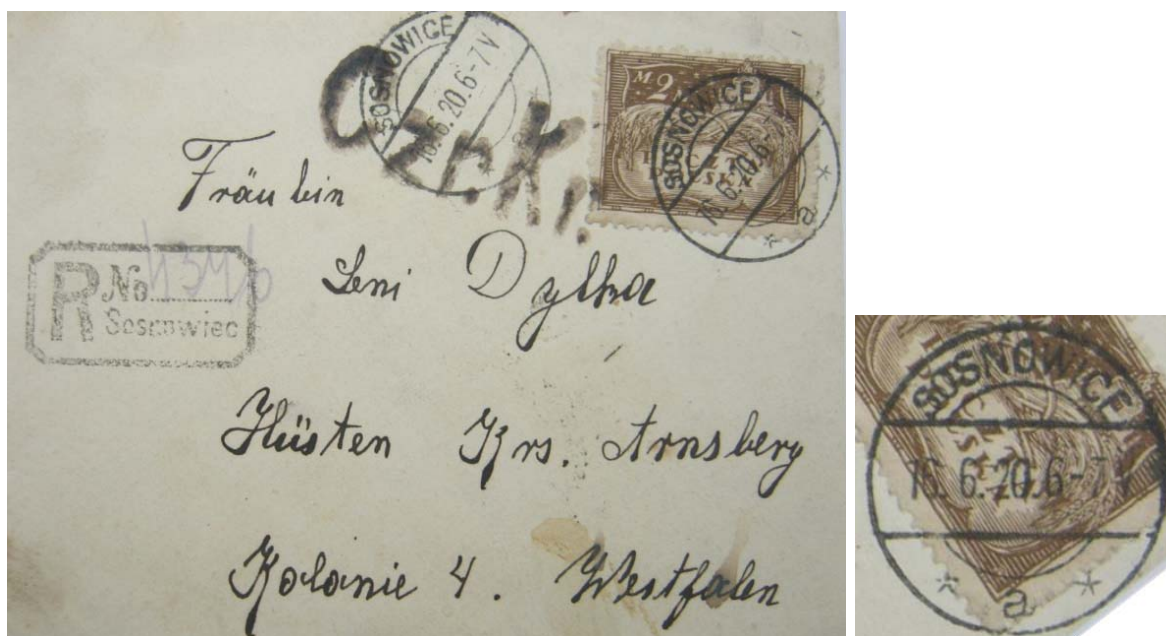 SOSNOWICE
16.6.20.6-7V
M 2
SOSNOWICE
16.6.20.6-
a
Fräulein
Leni Dylka
R No
Sosnowiec
Hüsten Krs. Arnsberg
Kolonie 4. Westfalen
SOSNOWICE
16.6.20.6-7V
a